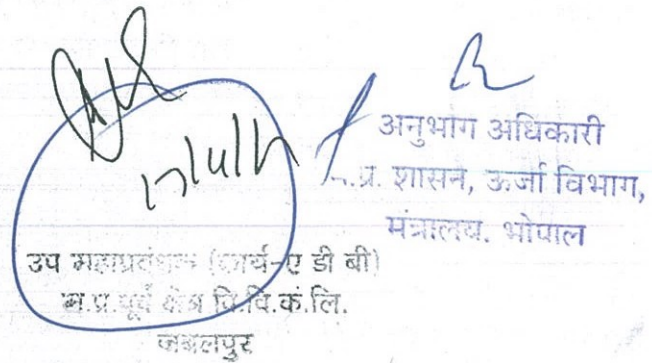 17/4/12
अनुभाग अधिकारी
म.प्र. शासन, ऊर्जा विभाग,
मंत्रालय. भोपाल
उप महाप्रबंधक (कार्य-ए डी बी)
म.प्र.पूर्व क्षेत्र वि.वि.कं.लि.
जबलपुर